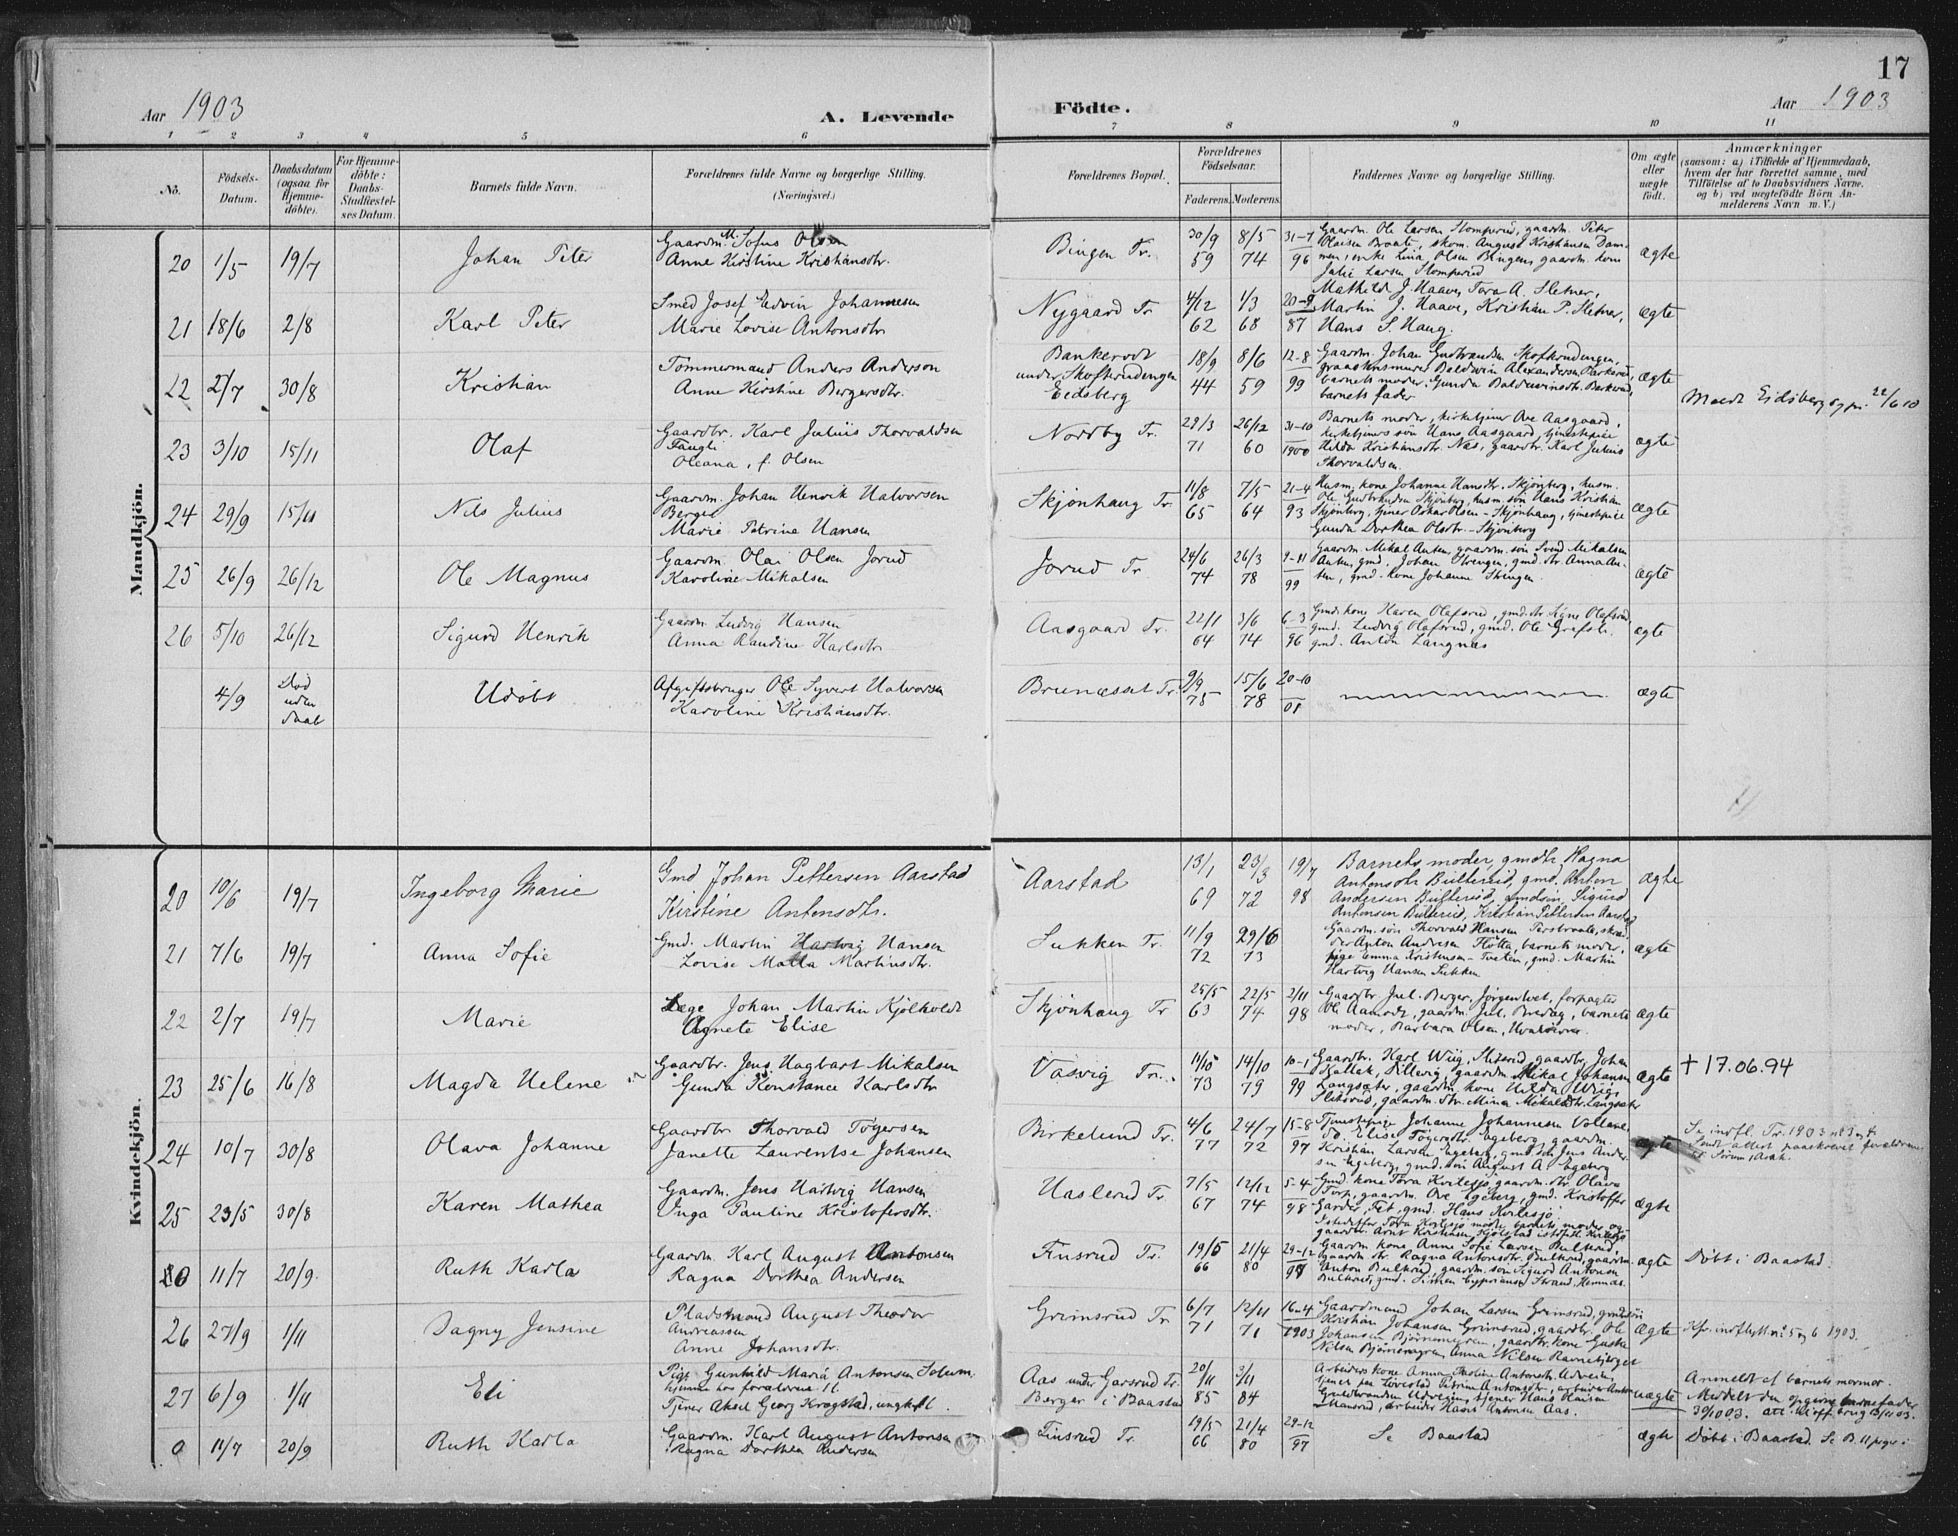 17
Aar 1903
A. Levende
Födte.
Aar 1903
1 2 3 4 5 6 7 8 9 10 11
Nö.
Födsels-
Datum.
Daabsdatum
(ogsaa for
Hjemme-
döbte).
For Hjemme-
döbte:
Daabs-
Stadfæstel-
ses Datum.
Barnets fulde Navn.
Forældrenes fulde Navne og borgerlige Stilling.
(Næringsvei.)
Forældrenes Bopæl.
Forældrenes
Födselsaar.
Faderens. Moderens.
Faddernes Navne og borgerlige Stilling.
Om ægte
eller
uægte
födt.
Anmærkninger
(saasom: a) i Tilfælde af Hjemmedaab,
hvem der har forrettet samme, med
Tilföielse af to Daabsvidners Navne.
og b) ved uægtefödte Börn An-
melderens Navn m. V.)
Mandkjön.
20 1/5 19/7 Johan Peter
Gaardm. M. Sofus Olsen
Anne Kirstine Kristiansdtr.
Bingen Tr.
30/9 59 8/5 74 31-7 96
Gaardm. Ole Larsen Stomperud, gaardm. Peter
Olaisen Braate, skom. August Kristiansen Dam-
men, enke Lina Olsen Bingen, gaardm. kone
Julie Larsen Stomperud
ægte
21 18/6 2/8 Karl Peter
Smed Josef Edvin Johannesen
Marie Lovise Antonsdtr
Nygaard Tr
4/12 62 1/3 68 20-9 87
Mathilde J. Haave, Tora A. Sletner,
Martin J. Haave, Kristian P. Sletner,
Hans S. Haug.
ægte
22 2/7 30/8 Kristian
Tømmermand Anders Anderson
Anne Kirstine Bergersdtr.
under Skofterudengen
Eidsberg
18/9 44 8/6 59 12-8 99
Gaardm. Johan Gudbrandsen Skofterudengen,
barnets moder, Gunda
barnets fader
ægte
22/6 10
23 3/10 15/11 Olaf
Gaardbr. Karl Julius Thorvaldsen
Fangli
Oleana, f. Olsen
Nordby Tr.
29/3 71 26/12 60 31-10 1900
Barnets moder, kirketjener Ove Aasgaard,
kirketjeners søn Hans Aasgaard, tjenestepige
Hilda Kristiansdtr. Næs, gaardbr. Karl Julius
Thorvaldsen.
ægte
24 29/9 15/11 Nils Julius
Gaardm. Johan Henrik Halvorsen
Berger
Marie Petrine Hansen
Skjønhaug Tr.
11/8 65 7/5 64 21-4 93
Husm. kone Johanne Hansdtr. Skjønberg, husm.
Ole Gudbrandsen Skjønberg, husm. søn Hans Kristian
Skjønberg, tjener Oskar Olsen - Skjønhaug, tjenestepige
Gunda Dorthea Olsdtr. - Skjønberg
ægte
25 26/9 26/12 Ole Magnus
Gaardm. Olai Olsen Jorud
Karoline Mikalsen
Jorud Tr
24/6 74 26/3 78 9-11 99
Gaardm. Mikal Antsen, gaardm. søn Svend Mikalsen
Antsen, gmd. Johan Strengen, gmd. dtr. Anna An-
tsen, gmd. kone Johanne Strengen.
ægte
26 5/10 26/12 Sigurd Henrik
Gaardm. Ludvig Hansen
Anna Randine Karlsdtr
Aasgaard Tr.
22/1 64 3/6 74 6-3 96
Gmd. kone Karen Olafsrud, gmd. dtr. Olafsrud
gmd. Ludvig Olafsrud, gmd. Ole Grefsli,
gmd. Anton Langnæs
ægte
4/9 Død
uden
daab
Udøbt
Afgiftsbruger Ole Syvert Halvorsen
Karoline Kristiansdtr.
Brunæsset Tr.
9/9 75 15/6 78 20-10 01
ægte
Kvindekjön.
20 10/6 19/7 Ingeborg Marie
Gmd Johan Pettersen Aarstad
Kirstine Antonsdtr.
Aarstad
13/1 69 23/3 72 19/7 98
Barnets moder, gmdtr. Ragna
Antonsdtr Bulterud, gmd. Anton
Andersen Bulterud, gmdsøn Sigurd
Antonsen Bulterud, Kristian Pettersen Aarstad
ægte
21 7/6 19/7 Anna Sofie
Gmd. Martin Hartvig Hansen
Lovise Matla Martinsdtr.
Sukken Tr.
11/9 72 29/6 73
Gaardm. søn Thorvald Hansen Tersbraate, skræd-
der Anton Andresen Fløtta, barnets moder,
pige Emma Kristensen - Tveten, gmd. Martin
Hartvig Hansen Sukken
ægte
22 2/7 19/7 Marie
Læge Johan Martin Kjølholdt
Agnete Elise
Skjønhaug Tr
25/5 63 22/5 74 2/11 98
Gaardbr Jul. Berger, Jørgentvet, forpagter
Ole Aamodt, gaardm. Jul. Bredag, barnets
moder, Barbara Olsen,
ægte
23 25/6 16/8 Magda Helene
Gaardbr. Jens Hagbart Mikalsen
Gunda Konstance Karlsdtr
Vasvig Tr.
11/10 73 14/10 79 10-1 99
Gaardbr. Karl Wiig, Slitsrud, gaardbr. Johan
Kallak, Lillevig, gaardm. Mikal Johansen
Langsæter, gaardm. kone Hilda Wiig,
Slitsrud, gaardm. dtr. Mina Mikalsdtr. Langsæter
ægte
† 17.06.94
24 10/7 30/8 Olava Johanne
Gaardbr Thorvald Tøgersen
Janette Laurentse Johansen
Birkelund Tr.
4/6 77 24/7 72 15-8 97
Tjenestepige Johanne Johannesen Vollene,
do. Elise Tøgersdtr. Egeberg, gaardm.
Kristian Larsen Egeberg, gmd. søn Jens Ander-
sen Egeberg, gmd. søn August A. Egeberg
ægte
Se indfl. Tr. 1903
25 23/5 30/8 Karen Mathea
Gaardm. Jens Hartvig Hansen
Inga Pauline Kristofersdtr.
Haslerud Tr.
7/5 67 12/12 74 5-4 98
Gmd. kone Tora Kvilesjø, gaardm. dtr. Olava
Torp, gaardm. Ove Egeberg, gmd. Kristoffer
Garder, Fet, gmd. Hans Kvilesjø.
Istedetfor Tora Kvilesjø mødte barnets moder og
gaardbr. Arnt Kristensen Kjølstad istedetf. Kvilesjø
ægte
11/7 20/9. Ruth Karla
Gaardm. Karl August Antonsen
Ragna Dorthea Andersen
Finsrud Tr.
19/5 66 21/4 80 29-12 97
Gaardm. kone Anne Sofie Larsen Bulterud,
gaardm. dtr. Ragna Antonsdtr. Bulterud, gaardm.
Anton Bulterud, gaardm. søn Sigurd Antonsen
Bulterud, gmd. Simen Cypriansen Strand, Hemnæs.
ægte
Døbt i Baastad.
26 27/9 1/11 Dagny Jensine
Pladsmand August Theodor
Andreassen
Anne Johansdtr.
Grimsrud Tr
6/7 71 12/11 71 16-4 1903
Gaardmand Johan Larsen Grimsrud, gmdsøn
Kristian Johansen Grimsrud, gaardbr. Ole
Johansen Bjørnemyren, gaardbr. kone Gustha
Nilsen Bjørnemyren, Anna Nilsen Ravnebjerget
ægte
Kfr. indflytt. nº 5 og 6 1903.
27 6/9 1/11 Eli
Pige Gunhild Maria Antonsen Solum,
hjemme hos forældrene
Tjener Aksel Georg Krogstad, ungkarl.
Aas under Garsrud Tr.
Berger i Baastad
20/11 85 3/11 84
Arbeiders kone Anna Antonsdtr. Udveien,
tjener paa Løvestad Petrine Antonsdtr., arbeider Anton
Gundbrandsen Udveien, tjener Hans Hansen
Mansrud, arbeider Hans Antonsen Aas.
uægte
Anmeldt af barnets mormor.
Meddelt den opgivne barnefader
30/10 03.
0 11/7 20/9 Ruth Karla
Gaardm. Karl August Antonsen
Ragna Dorthea Andersen
Finsrud Tr.
19/5 66 21/4 80 29-12 97
Se Baastad
ægte
Døbt i Baastad. Se B. 11 piger i